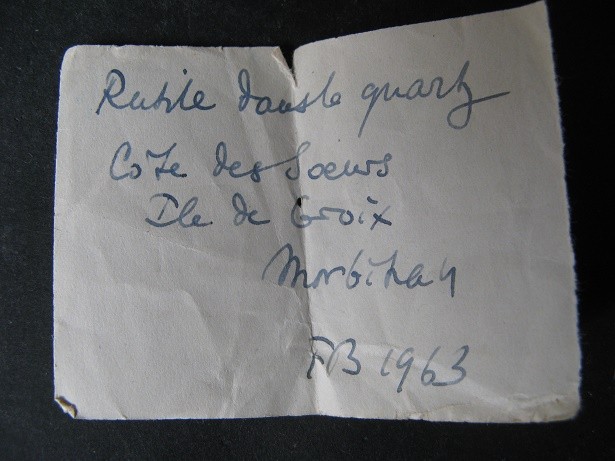 Rutile dans le quartz
Côte des Soeurs
Ile de Groix
Morbihan
FB 1963